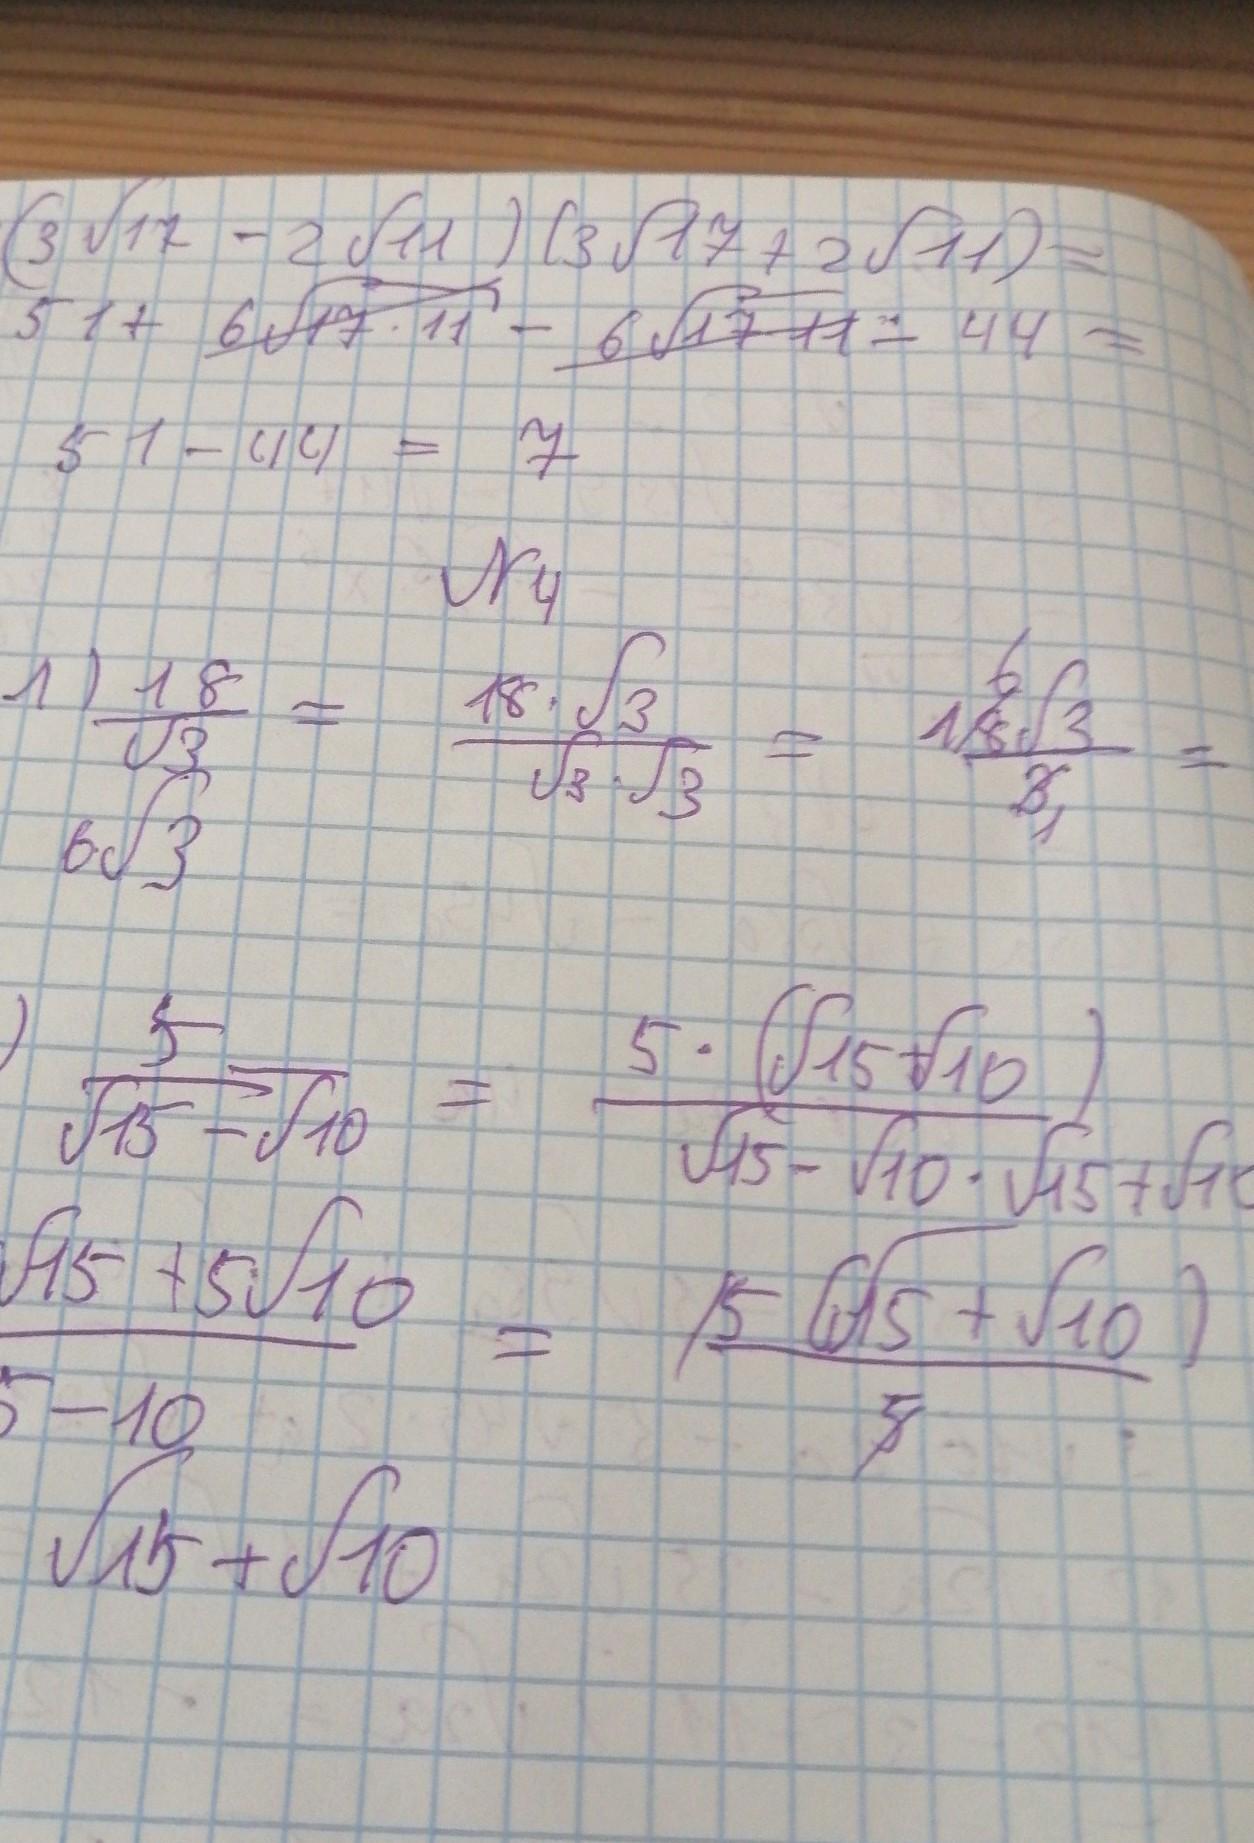 (3√17 - 2√11)(3√17 + 2√11) =
51 + 6√17·11 - 6√17·11 - 44 =
51 - 44 = 7
№4
1) 18/√3 = 18·√3/√3·√3 = 18√3/3 =
6√3
) 5/√15 - √10 = 5·(√15+√10)/√15 - √10·√15+√10
√15 + 5√10/5-10 = 5(√15 + √10)/5
√15 + √10